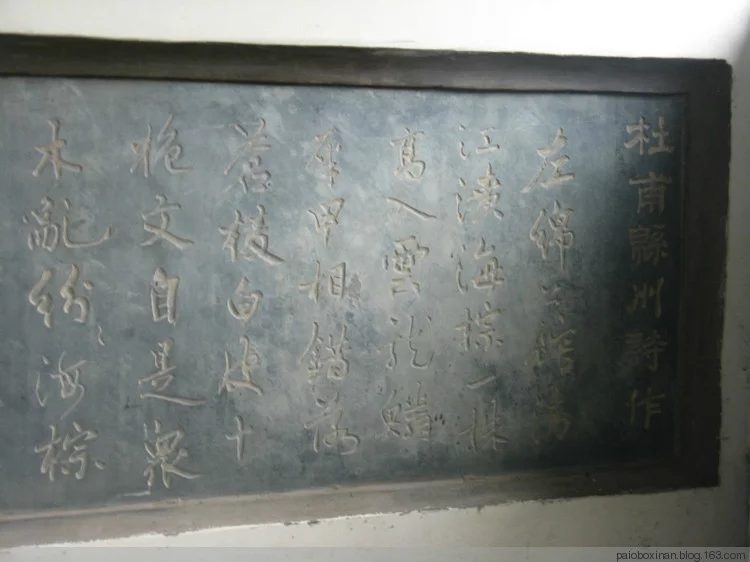 杜甫緜州詩作
左綿公館清
江濆海棕一株
高入雲龍鱗
犀甲相錯落
蒼棱白皮十
抱文自是衆
木亂紛々海棕
paioboxinan.blog.163.com